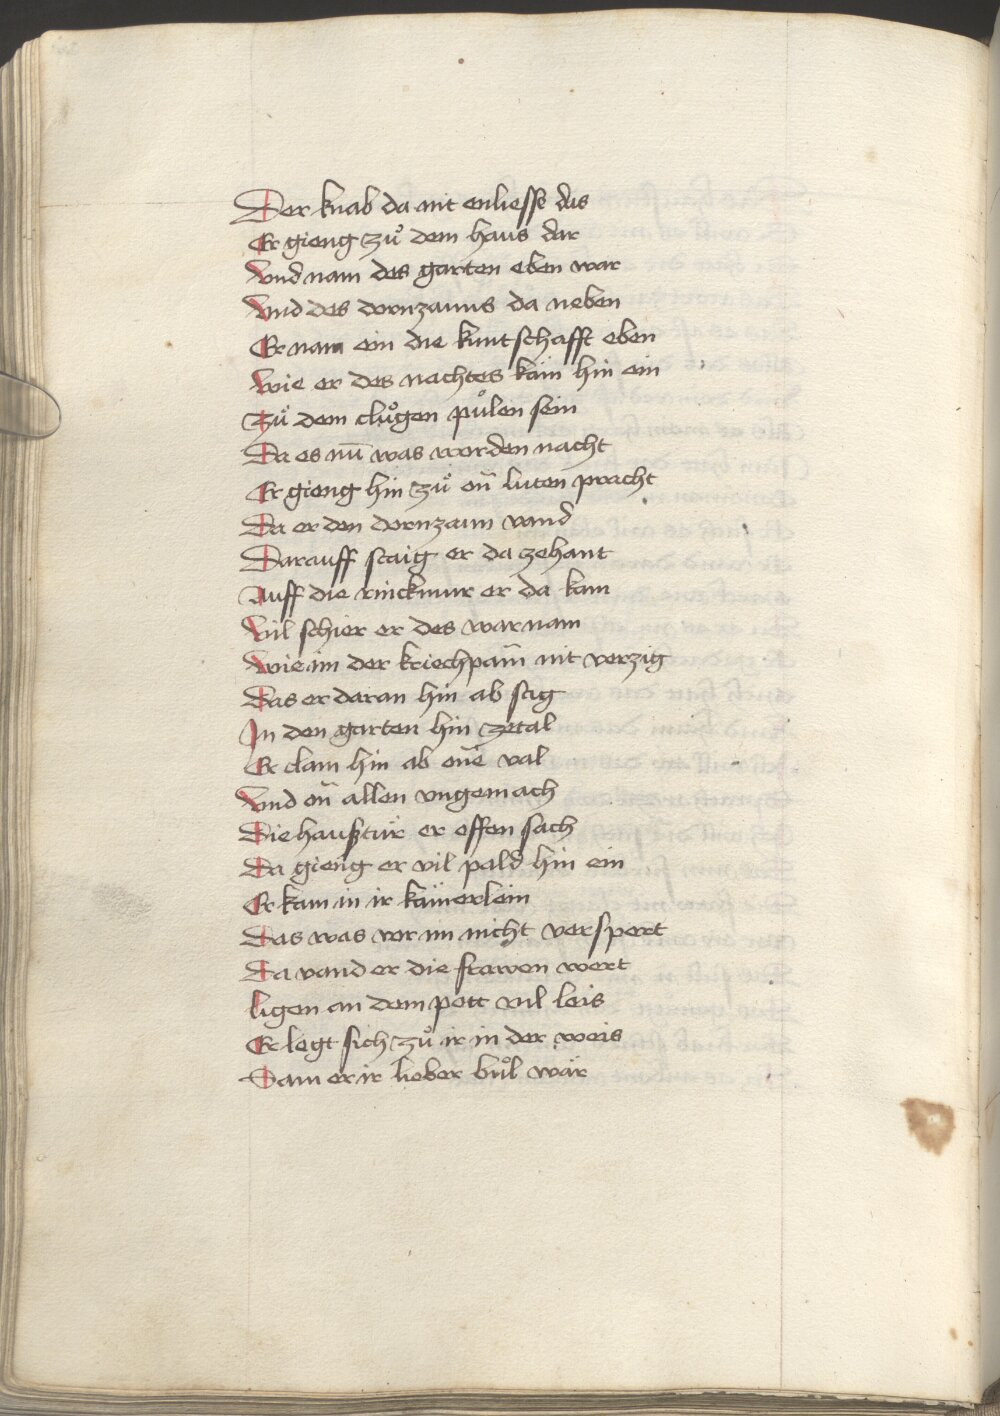 Der knab da mit enliesse das
Er gieng zuͦ dem haus dar
Vnd nam des garten eben war
Vnd des dornzauns da neben
Er nam ein die kuntschafft eben
Wie er des nachtes käm hin ein
Zuͦ dem cluͦgen puͦlen sein
Da es nu̅ was worden nacht
Er gieng hin zuͦ on̅ luten pracht
Da er den dornzaun vand
Darauff staig er da zehant
Auff die rinckmur er da kam
Vil schier er des war nam
Wie im der kriechpam̅ nit verzig
Das er daran hin ab stig
In den garten hin zetal
Er clam hin ab on̅e val
Vnd on̅ allen vngemach
Die haußtür er offen sach
Da gieng er vil pald hin ein
Er kam in ir kämerlein
Das was vor im nicht verspert
Da vand er die frawen wert
ligen an dem pett vil leis
Er legt sich zuͦ ir in der weis
Sam er ir lieber buͦl wär